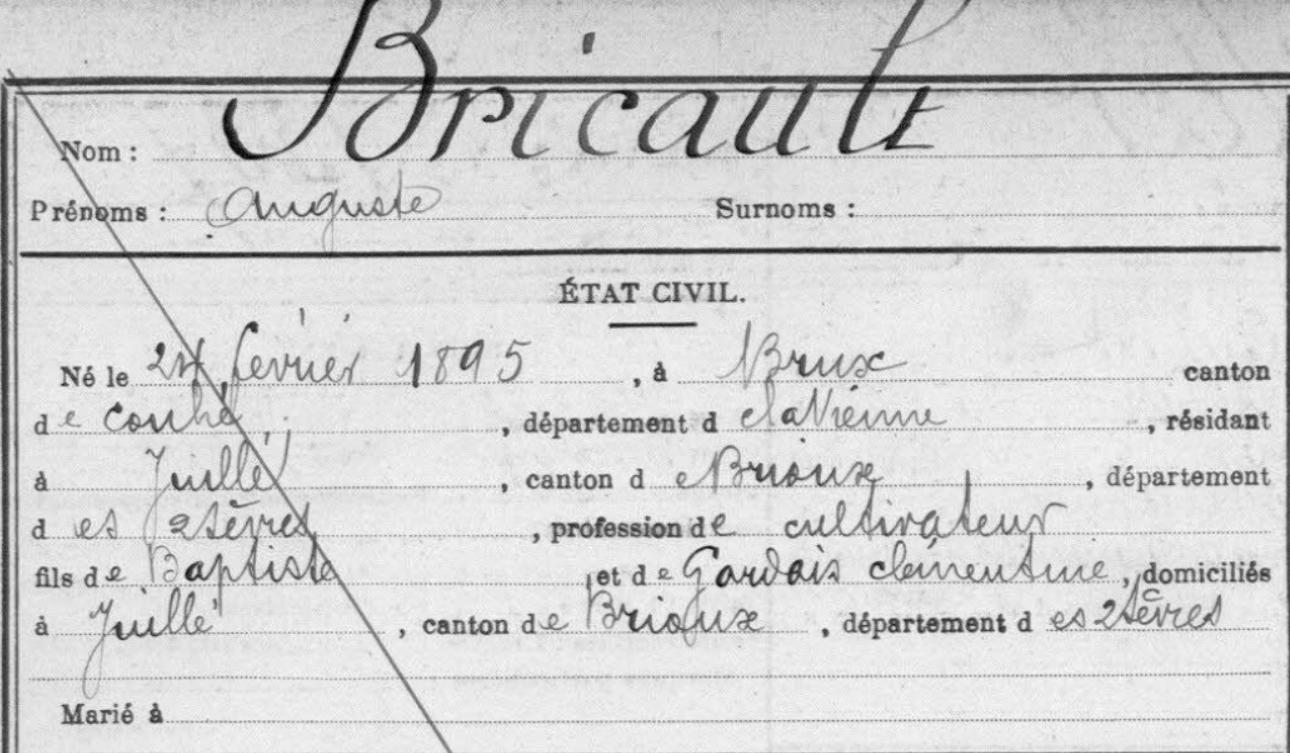 Nom : Bricault
Prénoms : Auguste Surnoms :
ÉTAT CIVIL.
Né le 24 février 1895, à Brux canton
de Couhé, département de la Vienne, résidant
à Juillé, canton de Brioux, département
des 2 Sèvres, profession de cultivateur
fils de Baptiste et de Gardais clémentine, domiciliés
à Juillé, canton de Brioux, département des 2 Sèvres
Marié à